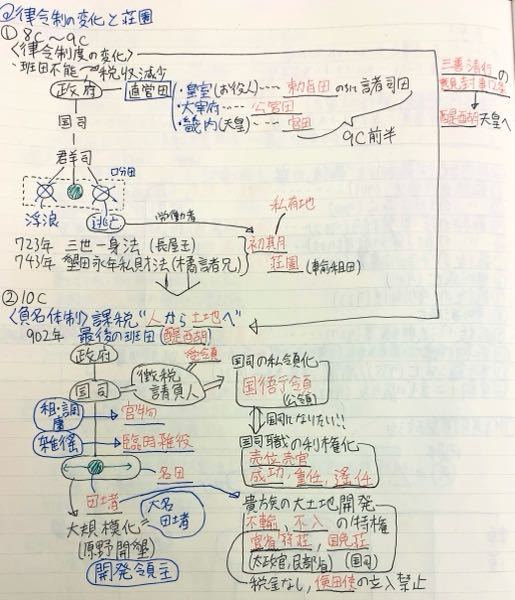 ②律令制の変化と荘園
① 8C～9C
〈律令制度の変化〉
・班田不能 税収減少
政府 直営田
・皇室(お役人)---- 勅旨田 のちに諸司田
・大宰府---- 公営田
・畿内(天皇)---- 官田
9C前半
三善清行の
意見封事12条
醍醐天皇へ
国司
郡司
口分田
浮浪 逃亡
労働者
私有地
723年 三世一身法(長屋王)
743年 墾田永年私財法(橘諸兄)
初期
荘園(輸租田)
② 10C
〈負名体制〉課税"人から土地へ"
902年 最後の班田(醍醐)
政府
国司
徴税
請負人
国司の私領化
国衙領
(公領)
国司になりたい!!
租・調
庸
官物
雑徭
臨時雑役
国司職の利権化
売位売官
成功,重任,遥任
名田
田堵
大名
田堵
大規模化
(原野開墾)
開発領主
貴族の大土地開発
不輸,不入の特権
官省符荘,国免荘
(太政官,民部省)(国司)
税金なし,検田使の立入禁止